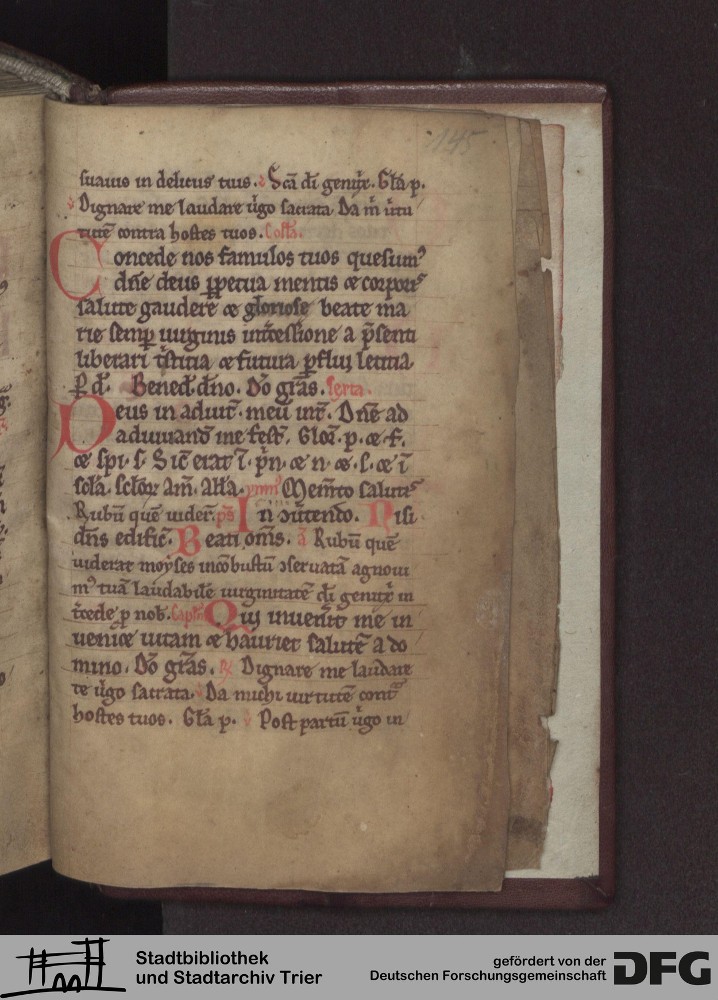 145
suauis in delicus tuis. Sca̅ di̅ genit̅x. Gl̅a p.
Dignare me laudare u̅go sacrata. Da m̅ u̅tu
tute̅ contra hostes tuos. Coll̅a.
Concede nos famulos tuos quesumꝰ
dn̅e deus ꝑpetua mentis ⁊ corporis
salute gaudere ⁊ gloriose beate ma
rie semꝑ uirginis int̅cessione a p̅senti
liberari t̅sticia ⁊ futura ꝑflui leticia
P. d̅. Bened̅. dn̅o. Do̅ gr̅as. Sexta.
Deus in adiut̅. meu̅ int̅. Dn̅e ad
adiuuand̅ me fest̅. Glor̅. p. ⁊ f.
⁊ spi. s. Sic̅ erat i̅. p̅n. ⁊ n. ⁊. s. ⁊ i̅
scl̅a. sclo̅ꝝ Am̅. All̅a. ymnꝰ Mem̅to salutis
Rubu̅ que̅ uider̅. ps̅ In ɔu̅tendo. Nisi
dn̅s edific̅. Beati om̅s. a̅ Rubu̅ que̅
uiderat moyses inco̅bustu̅ ɔseruata̅ agnoui
mꝰ tua̅ laudabile̅ uirginitate̅ di̅ genit̅x in
t̅cede p nob̅. Capl̅m Qui inuen̅it me in
ueniet uitam ⁊ hauriet salute̅ a do
mino. Do̅ gr̅as. ℟ Dignare me lauda
re u̅go sacrata. ℣ Da michi uirtute̅ cont̅
hostes tuos. Gl̅a p. ℣ Post partu̅ u̅go in
Stadtbibliothek
und Stadtarchiv Trier
gefördert von der
Deutschen Forschungsgemeinschaft
DFG